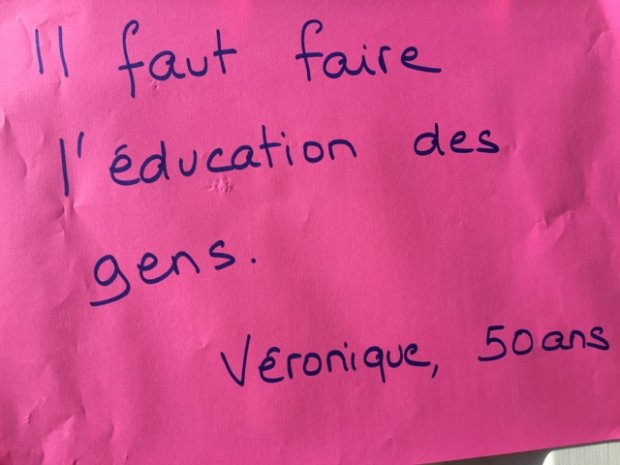 Il faut faire
l'éducation des
gens.
Véronique, 50 ans